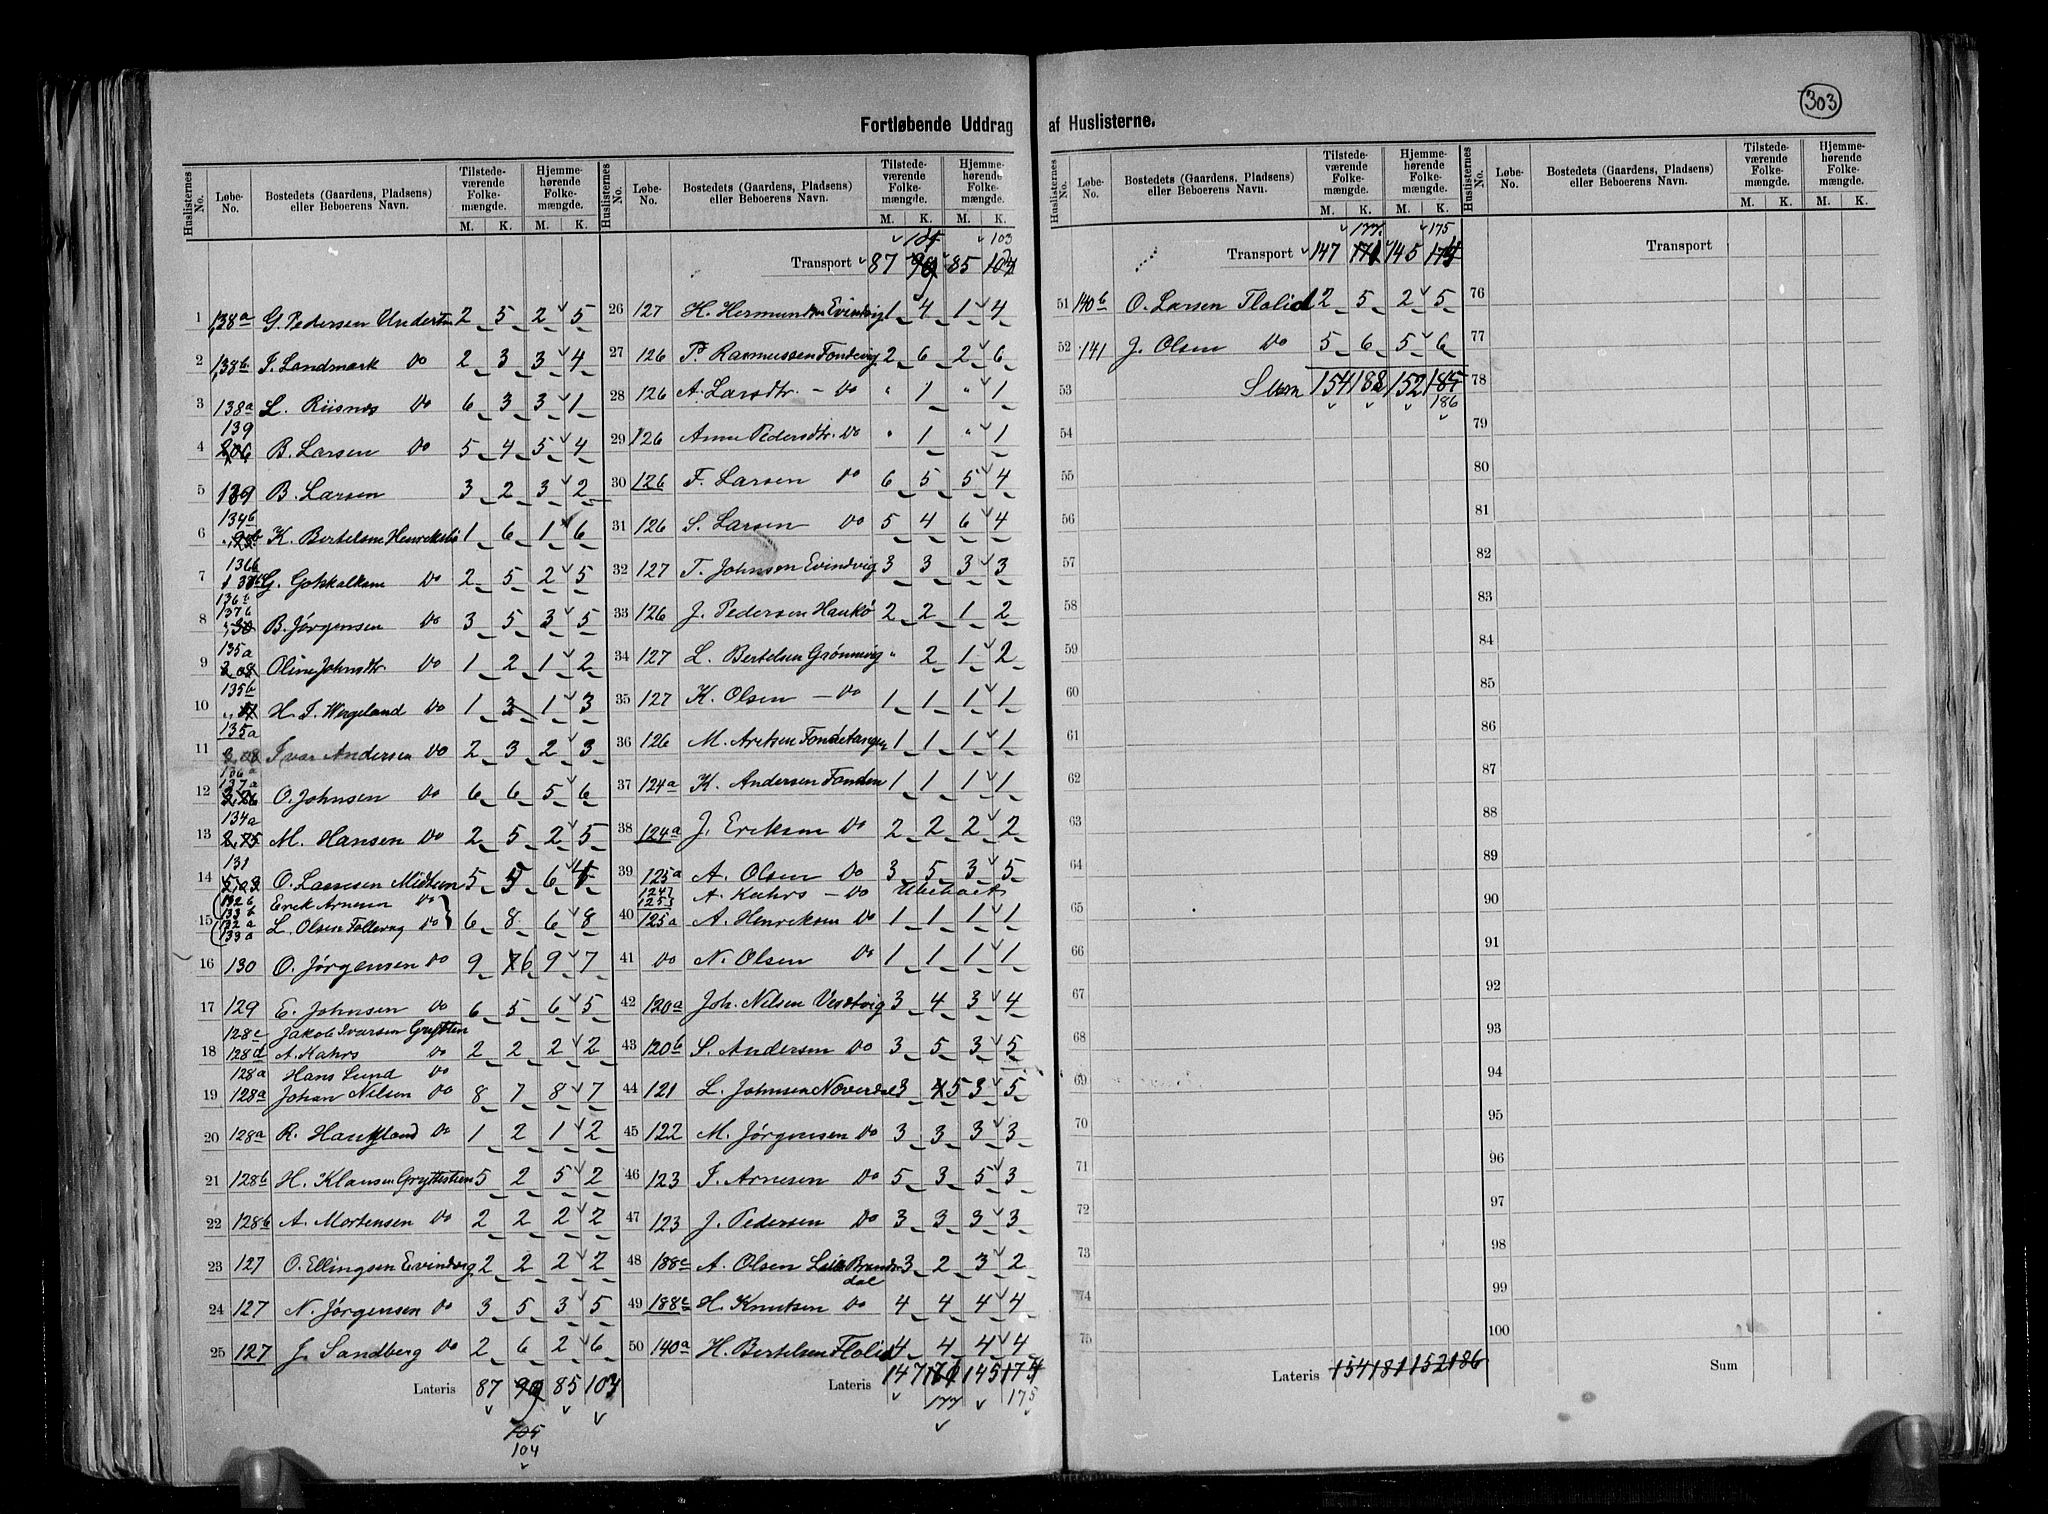 303
Fortløbende Uddrag af Huslisterne.
Huslisternes No. Løbe-No. Bostedets (Gaardens, Pladsens) eller Beboerens Navn. Tilstedeværende Folkemængde. M. K. Hjemmehørende Folkemængde. M. K.
1 138a G. Pedersen 2 5 2 5
2 138b I. Landmark Do 2 3 3 4
3 138a L. Riisnæs Do 6 3 3 1
4 139 B. Larsen Do 5 4 5 4
5 139 B. Larsen 3 2 3 2
6 134b K. Bertelsen Henriksbø 1 6 1 6
7 136b G. Do 2 5 2 5
8 136b 137b B. Jørgensen Do 3 5 3 5
9 135a Oline Johnsdtr. Do 1 2 1 2
10 135b H. I. Wergeland Do 1 3 1 3
11 135a Ivar Andersen Do 2 3 2 3
12 136a 137a O. Johnsen Do 6 6 5 6
13 134a M. Hansen Do 2 5 2 5
14 131 O. Lassesen Midttun 5 5 6
15 132b 133b Erik Arnesen Do
132a 133a L. Olsen Do 6 8 6 8
16 130 O. Jørgensen Do 9 6 9 7
17 129 E. Johnsen Do 6 5 6 5
128c Jakob Iversen
18 128d A. Kahrs Do 2 2 2 2
128a Hans Lund Do
19 128a Johan Nilsen Do 8 7 8 7
20 128a R. Haugland Do 1 2 1 2
21 128b H. Klausen 5 2 5 2
22 128b A. Mortensen Do 2 2 2 2
23 127 O. Ellingsen Evindvig 2 2 2 2
24 127 N. Jørgensen Do 3 5 3 5
25 127 J. Sandberg Do 2 6 2 6
Lateris 87 85 103
105
104
Huslisternes No. Løbe-No. Bostedets (Gaardens, Pladsens) eller Beboerens Navn. Tilstedeværende Folkemængde. M. K. Hjemmehørende Folkemængde. M. K.
103
Transport 87 85
26 127 H. Evindvig 1 4 1 4
27 126 P. Rasmussen Fondevig 2 6 2 6
28 126 A. Larsdtr. - Do " 1 " 1
29 126 Anne Pedersdtr. Do " 1 " 1
30 126 F. Larsen Do 6 5 5 4
31 126 S. Larsen Do 5 4 6 4
32 127 T. Johnsen Evindvig 3 3 3 3
33 126 J. Pedersen Haukø 2 2 1 2
34 127 L. Bertelsen Grønnevig " 2 1 2
35 127 K. Olsen - Do 1 1 1 1
36 126 M. Fondetangen 1 1 1 1
37 124a K. Andersen Fonden 1 1 1 1
38 124a J. Eriksen Do 2 2 2 2
39 125a A. Olsen Do 3 5 3 5
A. Kahrs - Do Ubeboet
40 125a A. Henriksen Do 1 1 1 1
41 Do N. Olsen Do 1 1 1 1
42 120a Joh. Nilsen 3 4 3 4
43 120b S. Andersen Do 3 5 3 5
44 121 L. Johnsen 3 5 3 5
45 122 M. Jørgensen Do 3 3 3 3
46 123 I. Arnesen Do 5 3 5 3
47 123 J. Pedersen Do 3 3 3 3
48 188c A. Olsen Lille Brandsdal 3 2 3 2
49 188c H. Knutsen Do 4 4 4 4
50 140a H. Bertelsen Flolid 4 4 4 4
Lateris 147 145
177 175
Huslisternes No. Løbe-No. Bostedets (Gaardens, Pladsens) eller Beboerens Navn. Tilstedeværende Folkemængde. M. K. Hjemmehørende Folkemængde. M. K.
177 175
Transport 147 145
51 140b O. Larsen Flolid 2 5 2 5
52 141 J. Olsen Do 5 6 5 6
53 Sum 154 188 152 185
186
54
55
56
57
58
59
60
61
62
63
64
65
66
67
68
69
70
71
72
73
74
75
Lateris 154 181 152 186
Huslisternes No. Løbe-No. Bostedets (Gaardens, Pladsens) eller Beboerens Navn. Tilstedeværende Folkemængde. M. K. Hjemmehørende Folkemængde. M. K.
Transport
76
77
78
79
80
81
82
83
84
85
86
87
88
89
90
91
92
93
94
95
96
97
98
99
100
Sum